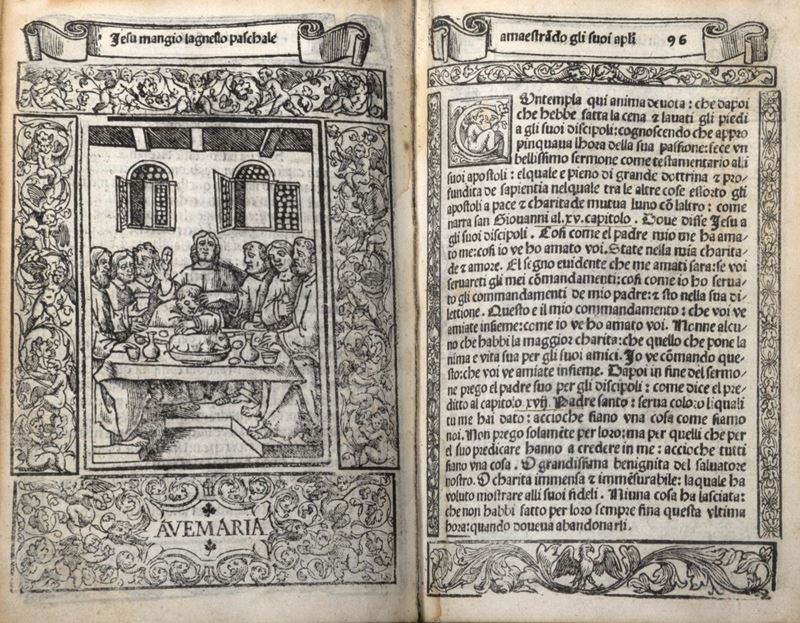 Jesu mangio lagnello paschale
AVEMARIA
amaestrãdo gli suoi apłi 96
COntempla qui anima deuota : che dapoi
che hebbe fatta la cena ⁊ lauati gli piedi
a gli suoi discipoli : cognoscendo che appro
pinquaua lhora della sua passione : fece vn
bellissimo sermone come testamentario alli
suoi apostoli : elquale e pieno di grande dottrina ⁊ pro-
fundita de sapientia nelquale tra le altre cose essorto gli
apostoli a pace ⁊ charita de mutua luno cõ laltro : come
narra san Giouanni al .xv. capitolo . Doue disse Jesu a
gli suoi discipoli . Cosi come el padre mio me ha ama-
to me : cosi io ve ho amato voi. State nella mia charita-
de ⁊ amore. El segno euidente che me amati sara : se voi
seruareti gli mei cõmandamenti : cosi come io ho serua-
to gli commandamenti de mio padre : ⁊ sto nella sua di-
lettione . Questo e il mio commandamento : che voi ve
amiate insieme : come io ve ho amato voi. Nonne alcu-
no che habbi la maggior charita : che quello che pone la
nima e vita sua per gli suoi amici. Jo ve cõmando que-
sto : che voi ve amiate insieme. Dapoi in fine del sermo-
ne prego el padre suo per gli discipoli : come dice el pre-
ditto al capitolo .xvij. Padre santo : serua coloro liquali
tu me hai dato : accioche siano vna cosa come siamo
noi. Non prego solamẽte per loro : ma per quelli che per
el suo predicare hanno a credere in me : accioche tutti
siano vna cosa . O grandissima benignita del saluatore
nostro. O charita immensa ⁊ immẽsurabile : laquale ha
voluto mostrare alli suoi fideli . Niuna cosa ha lasciata :
che non habbi fatto per loro sempre fina questa vltima
hora : quando doueua abandonarli.